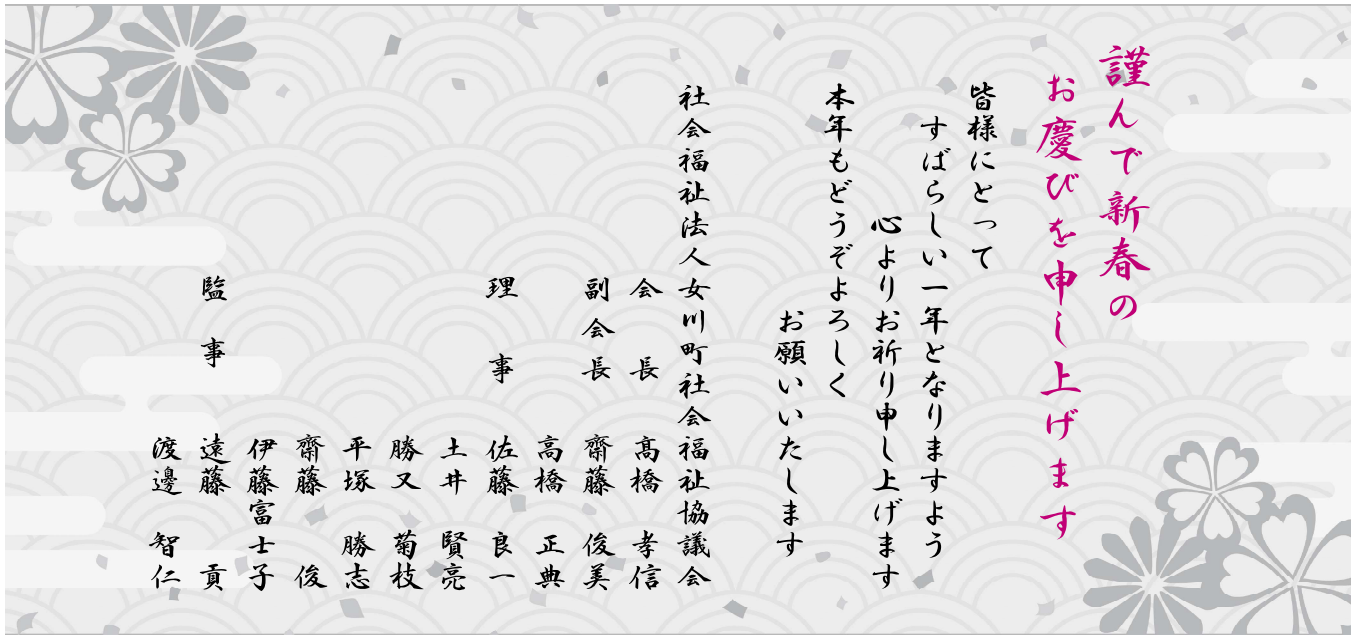 謹んで新春の
お慶びを申し上げます
皆様にとって
すばらしい一年となりますよう
心よりお祈り申し上げます
本年もどうぞよろしく
お願いいたします
社会福祉法人女川町社会福祉協議会
会長 髙橋 孝信
副会長 齋藤 俊美
高橋 正典
理事 佐藤 良一
土井 賢亮
勝又 菊枝
平塚 勝志
齋藤 俊
伊藤富士子
監事 遠藤 貢
渡邊 智仁